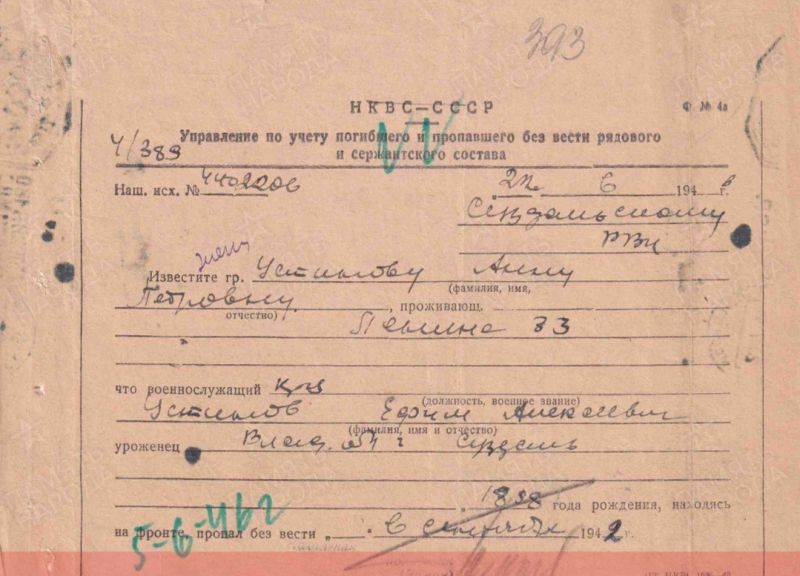 393
НКВС—СССР
Ф. № 4а
Управление по учету погибшего и пропавшего без вести рядового
и сержантского состава
4/389
Наш. исх. №
22. 6 1946 г.
Суздальскому
РВК
жену
Известите гр. Устилову Анну
(фамилия, имя,
Петровну, проживающ.
отчество)
Ленина 33
что военнослужащий кр-ц
(должность, военное звание)
Устилов Ефим Алексеевич
(фамилия, имя и отчество)
уроженец Влад. обл г Суздаль
года рождения, находясь
на фронте, пропал без вести „ . в 1942 г.
5-6-462